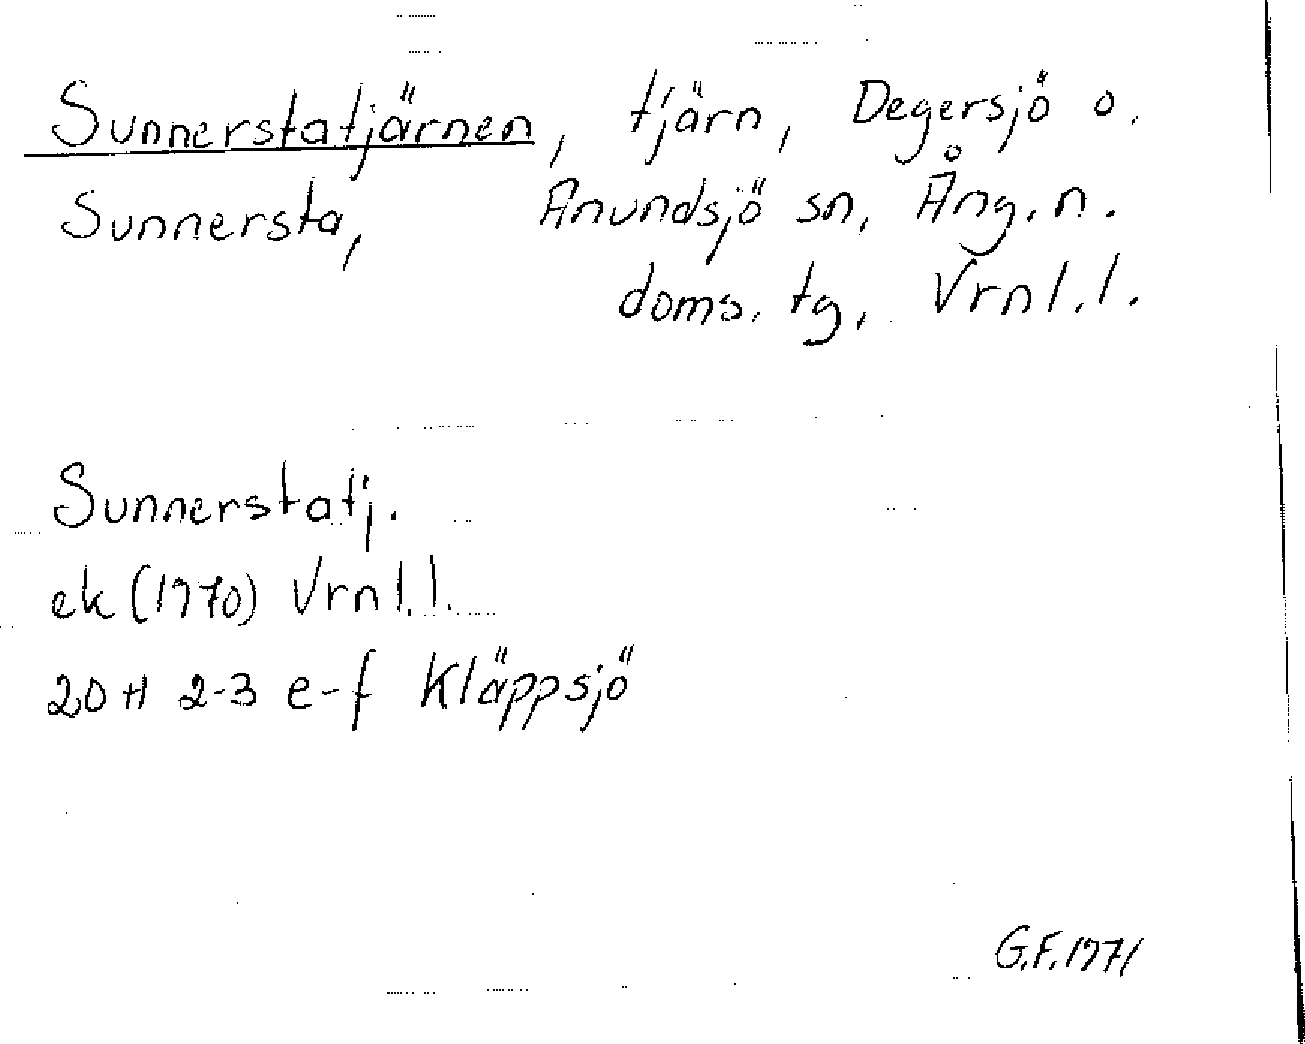 Sunnerstatjärnen, tjärn, Degersjö o.
Sunnersta, Anundsjö sn, Ång. n.
doms. tg, Vrnl. l.
Sunnerstatj.
ek (1970) Vrnl. l.
20 H 2-3 e-f Kläppsjö
G.F. 1971